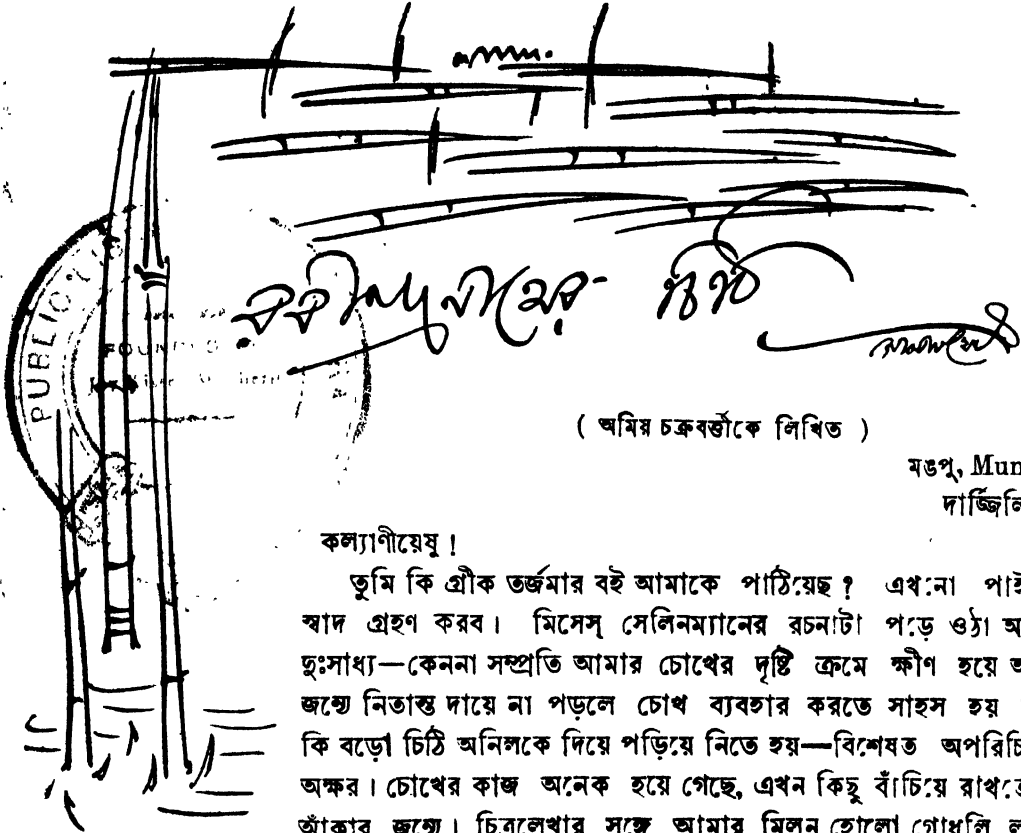 রবীন্দ্রনাথের চিঠি
PUBLIC
( অমিয় চক্রবর্ত্তীকে লিখিত )
মঙপু, Mun
দার্জ্জিলি
কল্যাণীয়েষু !
তুমি কি গ্রীক তর্জমার বই আমাকে পাঠিয়েছ ? এখনো পাই
স্বাদ গ্রহণ করব। মিসেস্ সেলিনম্যানের রচনাটা পড়ে ওঠা অ
দুঃসাধ্য—কেননা সম্প্রতি আমার চোখের দৃষ্টি ক্রমে ক্ষীণ হয়ে আ
জন্যে নিতান্ত দায়ে না পড়লে চোখ ব্যবহার করতে সাহস হয়
কি বড়ো চিঠি অনিলকে দিয়ে পড়িয়ে নিতে হয়—বিশেষত অপরিচি
অক্ষর। চোখের কাজ অনেক হয়ে গেছে, এখন কিছু বাঁচিয়ে রাখতে
আঁকার জন্যে। চিত্রলেখার সঙ্গে আমার মিলন হোলো গোধূলি ল